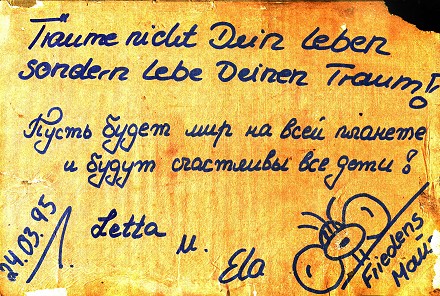 Träume nicht Dein Leben
sondern lebe Deinen Traum!
Пусть будет мир на всей планете
и будут счастливы все дети!
24.03.95
Letta
и.
Ela
Friedens
Mau